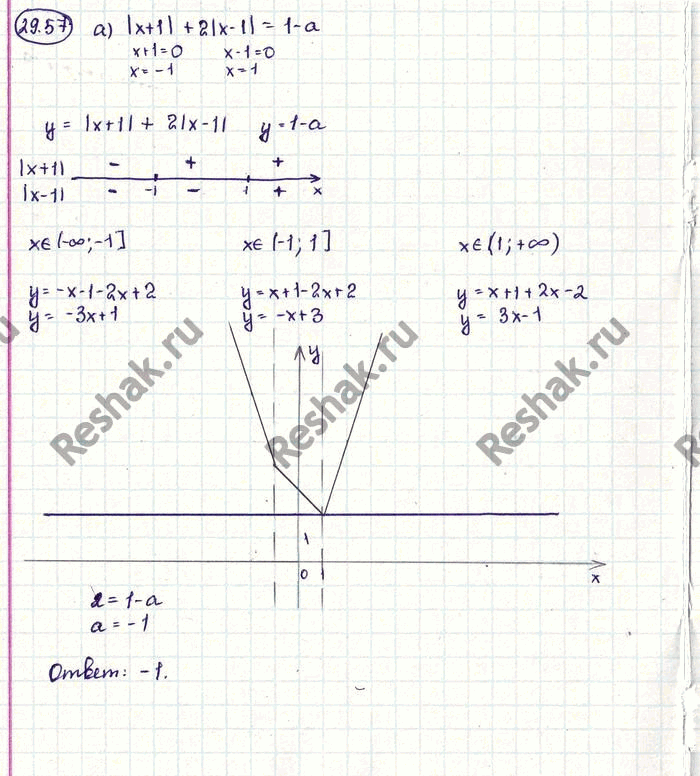 29.57 а) |x+1| + 2|x-1| = 1-a
x+1=0 x-1=0
x=-1 x=1
y = |x+1| + 2|x-1| y=1-a
|x+1| - + +
|x-1| - -1 - 1 + x
x∈(-∞;-1] x∈(-1; 1] x∈(1;+∞)
y=-x-1-2x+2 y=x+1-2x+2 y=x+1+2x-2
y= -3x+1 y= -x+3 y= 3x-1
y
Reshak.ru Reshak.ru Reshak.ru
1
0 1 x
2=1-a
a=-1
Ответ: -1.